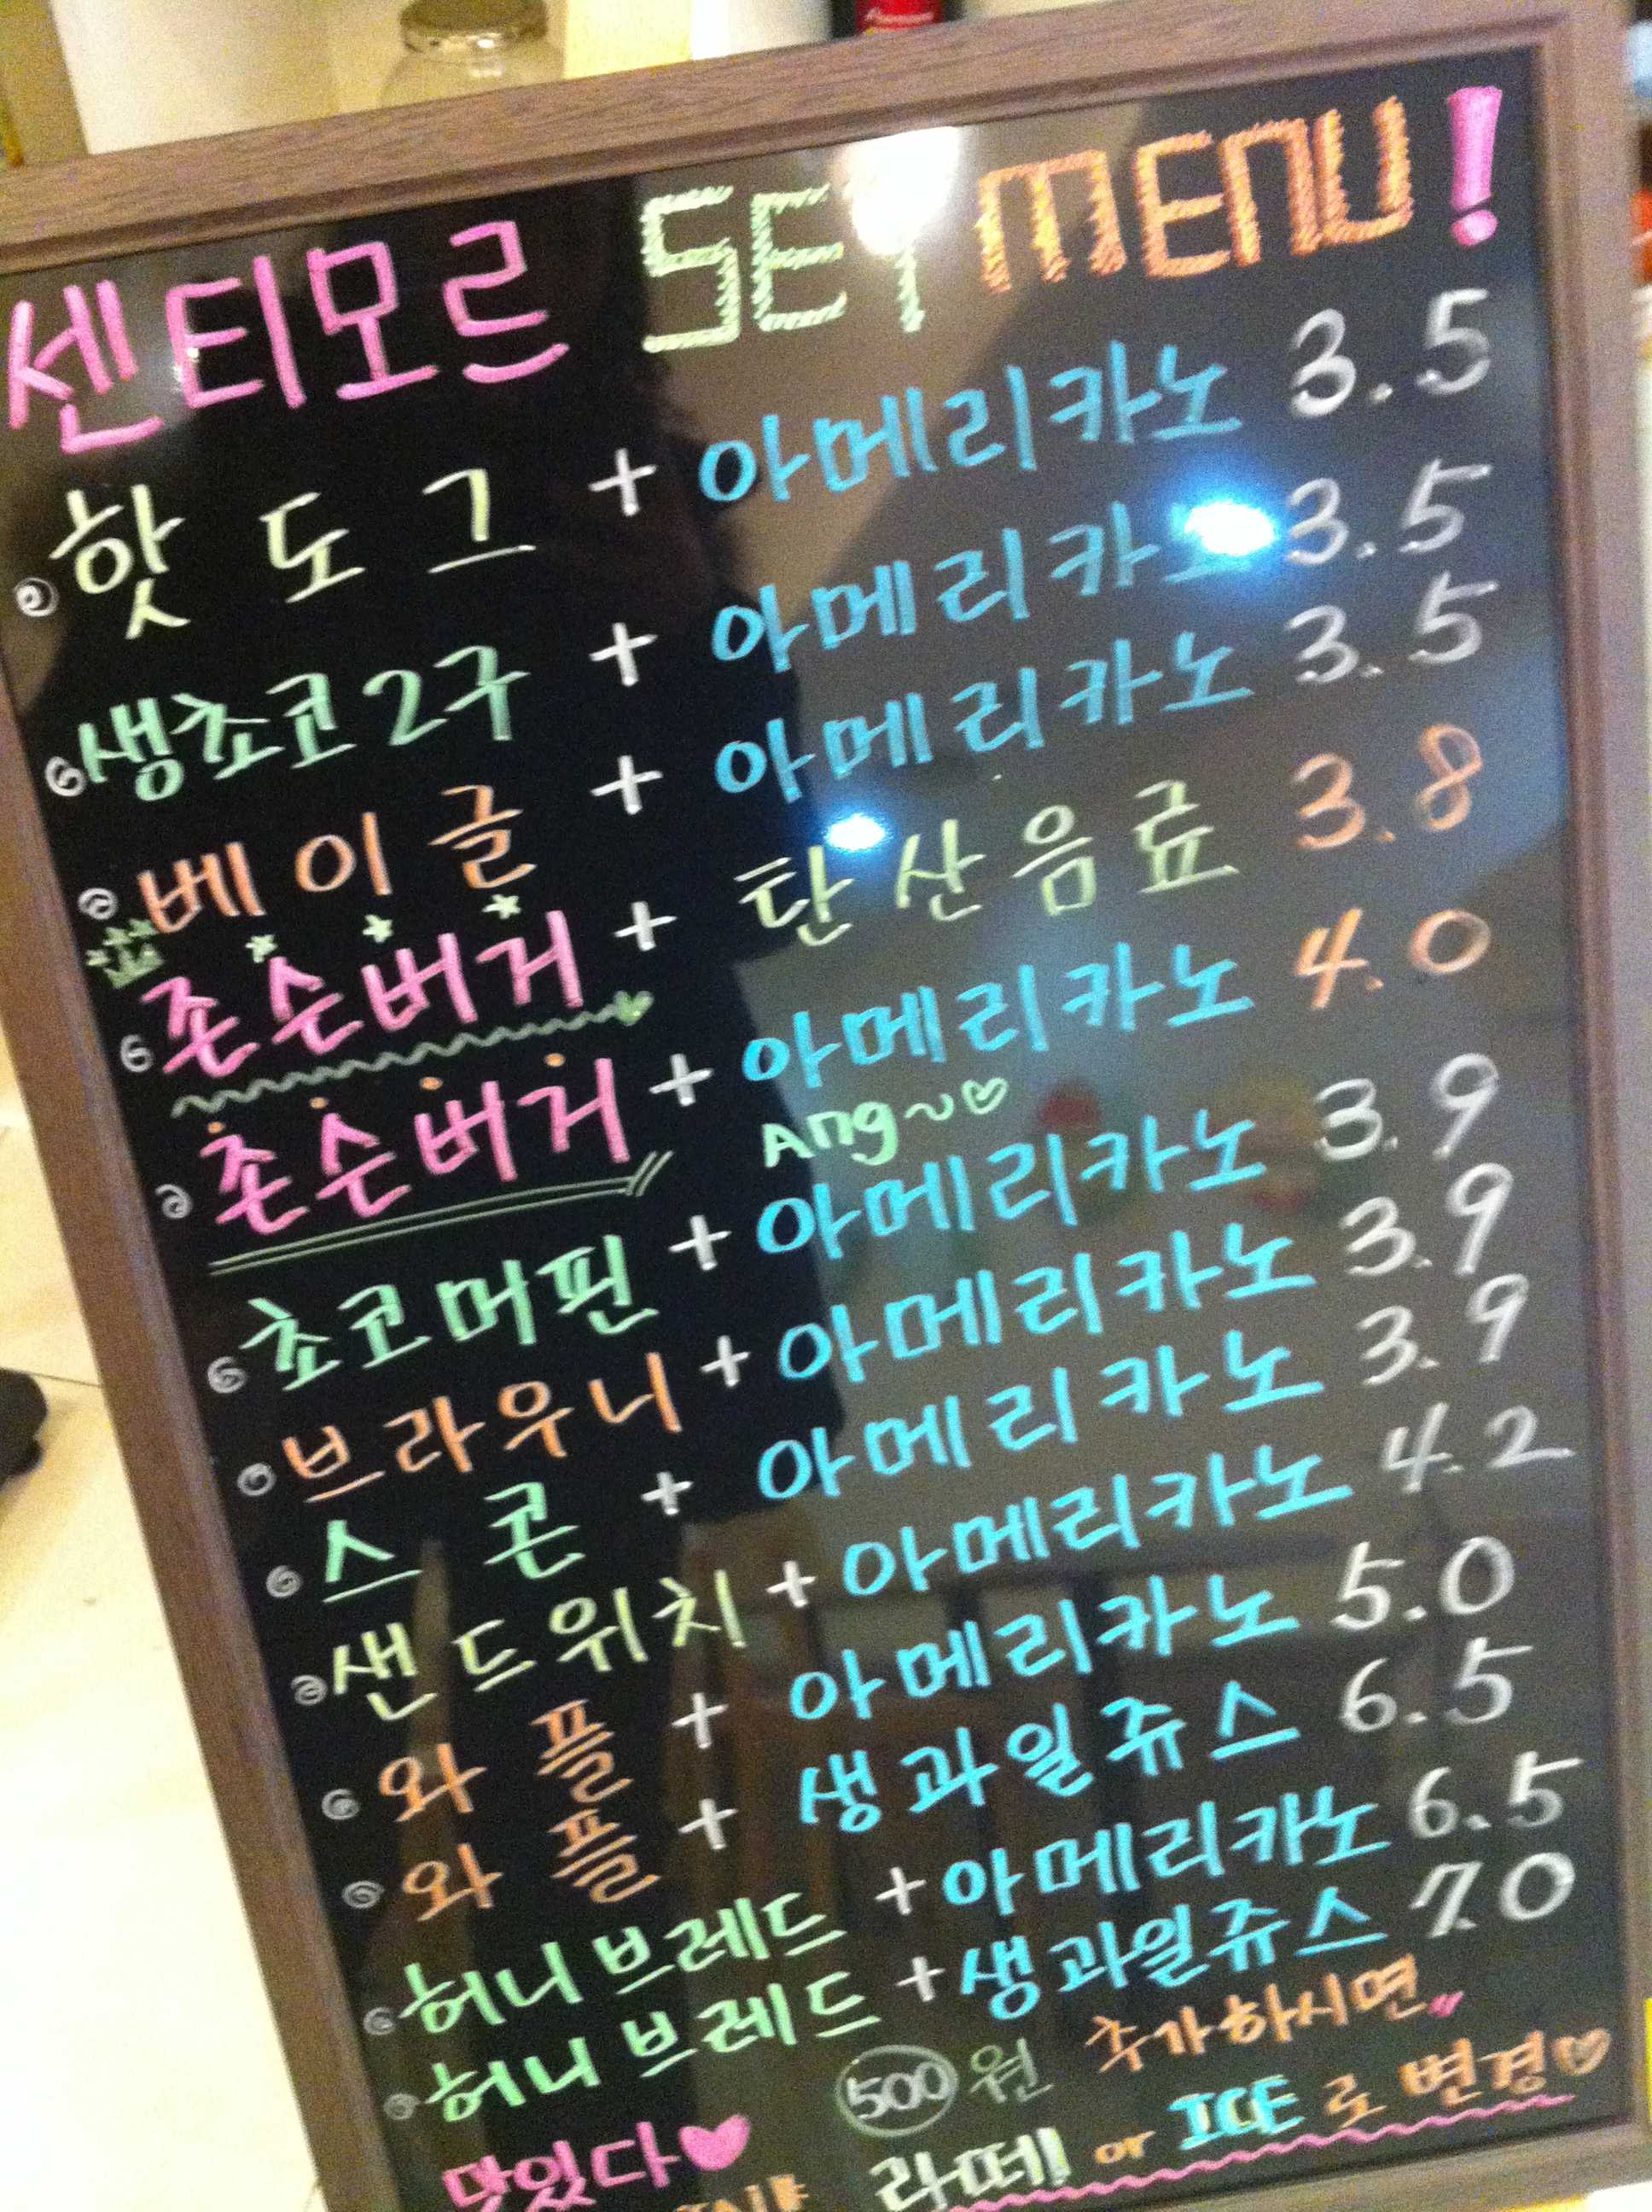 센티모르 SET MENU!
핫도그 + 아메리카노 3.5
생초코2구 + 아메리카노 3.5
베이글 + 아메리카노 3.5
존슨버거 + 탄산음료 3.8
존슨버거 + 아메리카노 4.0
Ang~♡
초코머핀 + 아메리카노 3.9
브라우니 + 아메리카노 3.9
스콘 + 아메리카노 3.9
샌드위치 + 아메리카노 4.2
와플 + 아메리카노 5.0
와플 + 생과일쥬스 6.5
허니브레드 + 아메리카노 6.5
허니브레드 + 생과일쥬스 7.0
500원 추가하시면
맛있다♥ 라떼! or ICE로 변경♡